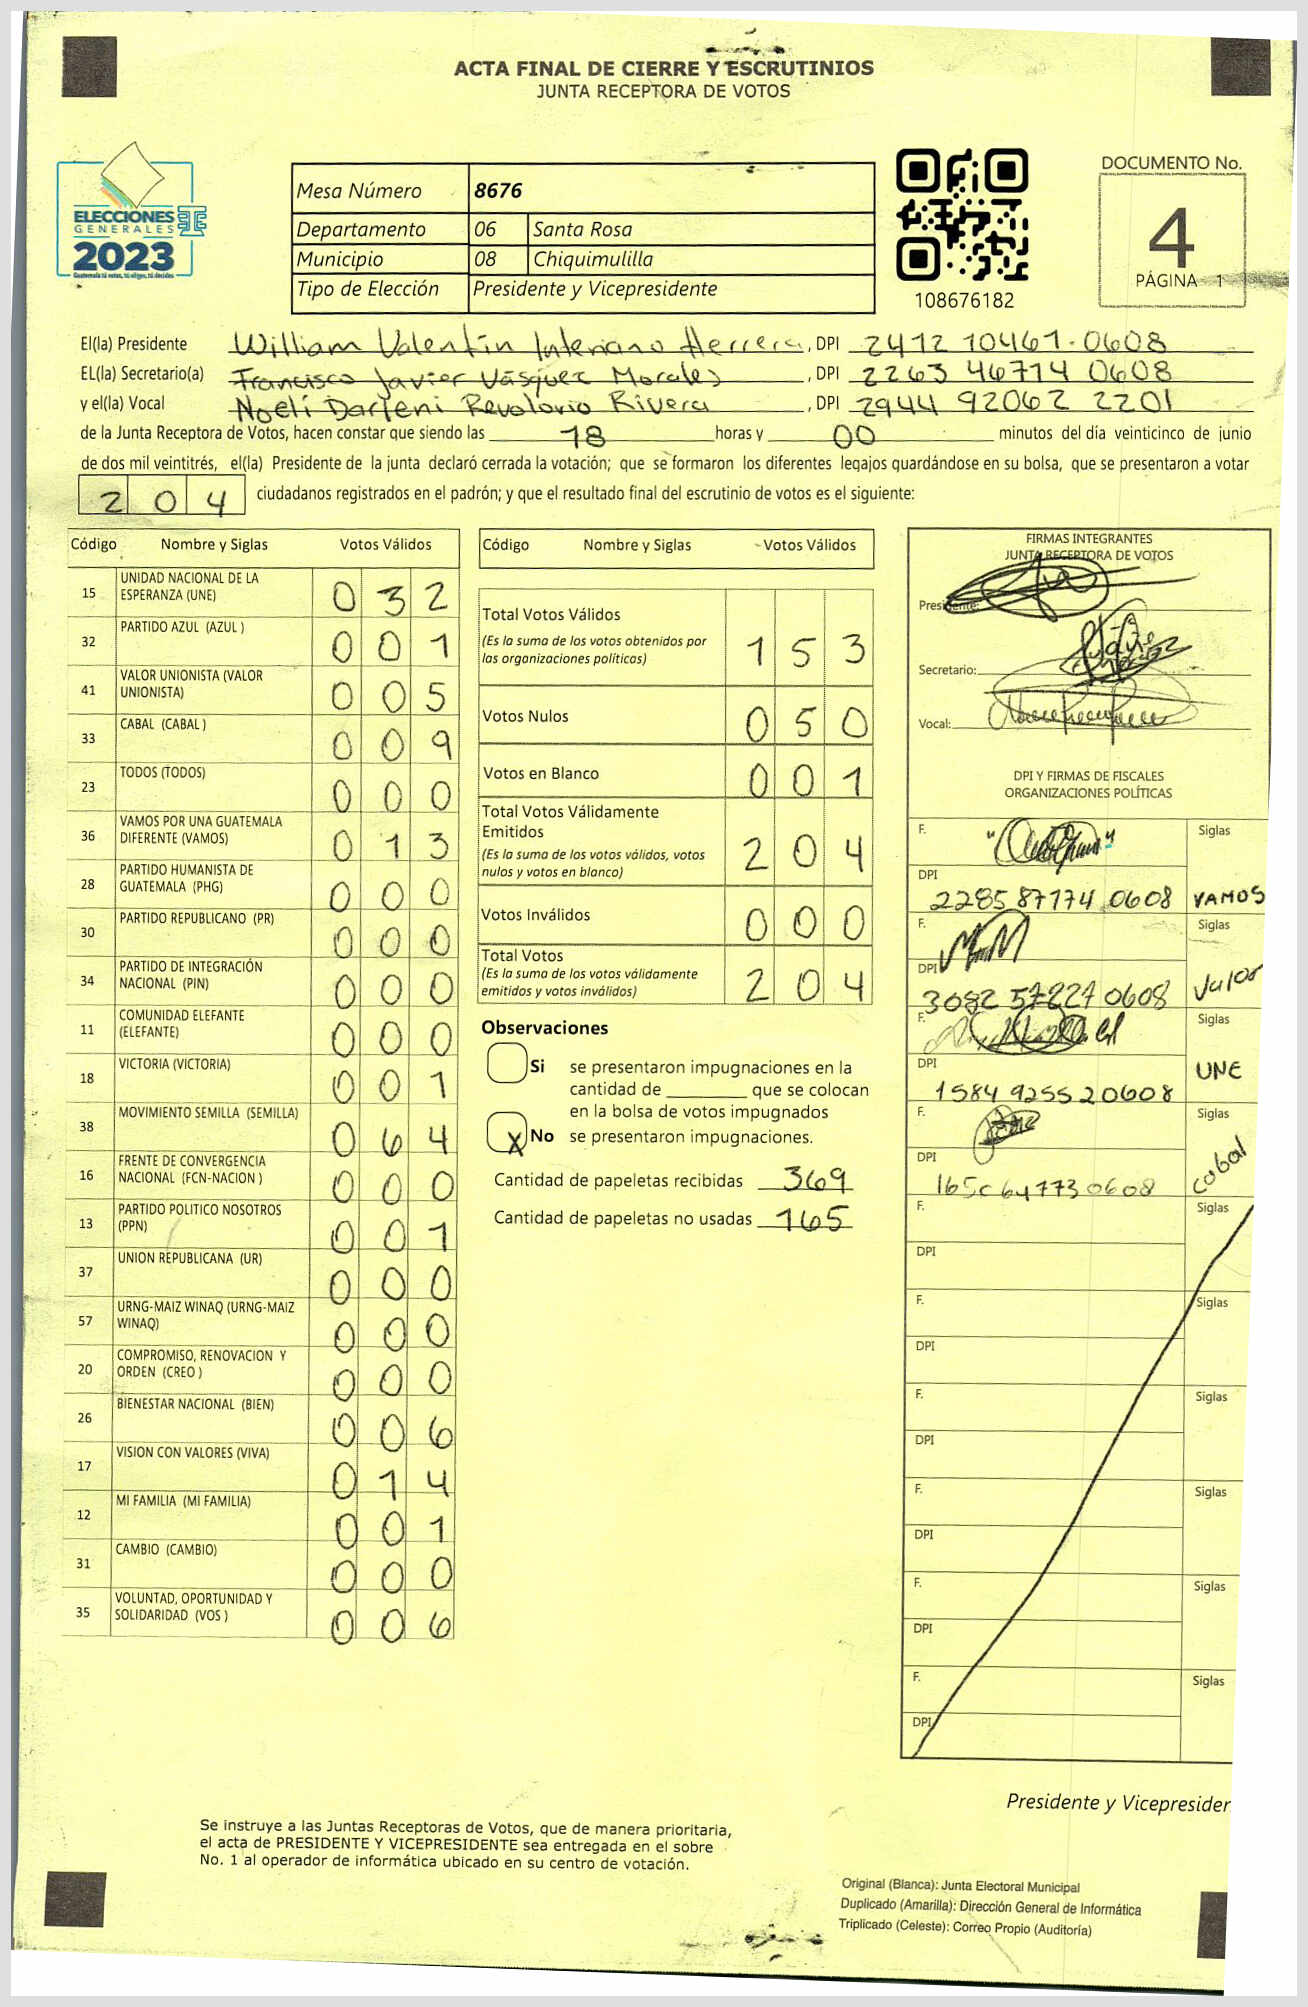 ACTA FINAL DE CIERRE Y ESCRUTINIOS
JUNTA RECEPTORA DE VOTOS
ELECCIONES
GENERALES
2023
Guatemala tú votas, tú eliges, tú decides
Mesa Número 8676
Departamento 06 Santa Rosa
Municipio 08 Chiquimulilla
Tipo de Elección Presidente y Vicepresidente
108676182
DOCUMENTO No.
4
PÁGINA 1
El(la) Presidente William Valentín Interiano Herrera, DPI 2412 10461 0608
EL(la) Secretario(a) Francisco Javier Vásquez Morales, DPI 2263 46714 0608
y el(la) Vocal Noelí Darleni Revolorio Rivera, DPI 2944 92062 2201
de la Junta Receptora de Votos, hacen constar que siendo las 18 horas y 00 minutos del día veinticinco de junio
de dos mil veintitrés, el(la) Presidente de la junta declaró cerrada la votación; que se formaron los diferentes legajos guardándose en su bolsa, que se presentaron a votar
204 ciudadanos registrados en el padrón; y que el resultado final del escrutinio de votos es el siguiente:
Código Nombre y Siglas Votos Válidos
15 UNIDAD NACIONAL DE LA ESPERANZA (UNE) 032
32 PARTIDO AZUL (AZUL ) 001
41 VALOR UNIONISTA (VALOR UNIONISTA) 005
33 CABAL (CABAL ) 009
23 TODOS (TODOS) 000
36 VAMOS POR UNA GUATEMALA DIFERENTE (VAMOS) 013
28 PARTIDO HUMANISTA DE GUATEMALA (PHG) 000
30 PARTIDO REPUBLICANO (PR) 000
34 PARTIDO DE INTEGRACIÓN NACIONAL (PIN) 000
11 COMUNIDAD ELEFANTE (ELEFANTE) 000
18 VICTORIA (VICTORIA) 001
38 MOVIMIENTO SEMILLA (SEMILLA) 064
16 FRENTE DE CONVERGENCIA NACIONAL (FCN-NACION ) 000
13 PARTIDO POLITICO NOSOTROS (PPN) 001
37 UNION REPUBLICANA (UR) 000
57 URNG-MAIZ WINAQ (URNG-MAIZ WINAQ) 000
20 COMPROMISO, RENOVACION Y ORDEN (CREO ) 000
26 BIENESTAR NACIONAL (BIEN) 006
17 VISION CON VALORES (VIVA) 014
12 MI FAMILIA (MI FAMILIA) 001
31 CAMBIO (CAMBIO) 000
35 VOLUNTAD, OPORTUNIDAD Y SOLIDARIDAD (VOS ) 006
Código Nombre y Siglas Votos Válidos
Total Votos Válidos 153
(Es la suma de los votos obtenidos por
las organizaciones políticas)
Votos Nulos 050
Votos en Blanco 001
Total Votos Válidamente
Emitidos 204
(Es la suma de los votos válidos, votos
nulos y votos en blanco)
Votos Inválidos 000
Total Votos 204
(Es la suma de los votos válidamente
emitidos y votos inválidos)
Observaciones
Si se presentaron impugnaciones en la
cantidad de ________ que se colocan
en la bolsa de votos impugnados
X No se presentaron impugnaciones.
Cantidad de papeletas recibidas 369
Cantidad de papeletas no usadas 165
FIRMAS INTEGRANTES
JUNTA RECEPTORA DE VOTOS
Presidente:
Secretario:
Vocal:
DPI Y FIRMAS DE FISCALES
ORGANIZACIONES POLÍTICAS
F. Siglas
DPI
2285 87774 0608 VAMOS
F. Siglas
DPI
3082 57227 0608 Valor
F. Siglas
DPI
1584 92552 0608 UNE
F. Siglas
DPI
0608 cabal
F. Siglas
DPI
F. Siglas
DPI
F. Siglas
DPI
F. Siglas
DPI
F. Siglas
DPI
F. Siglas
DPI
Presidente y Vicepresiden
Se instruye a las Juntas Receptoras de Votos, que de manera prioritaria,
el acta de PRESIDENTE Y VICEPRESIDENTE sea entregada en el sobre
No. 1 al operador de informática ubicado en su centro de votación.
Original (Blanca): Junta Electoral Municipal
Duplicado (Amarilla): Dirección General de Informática
Triplicado (Celeste): Correo Propio (Auditoría)